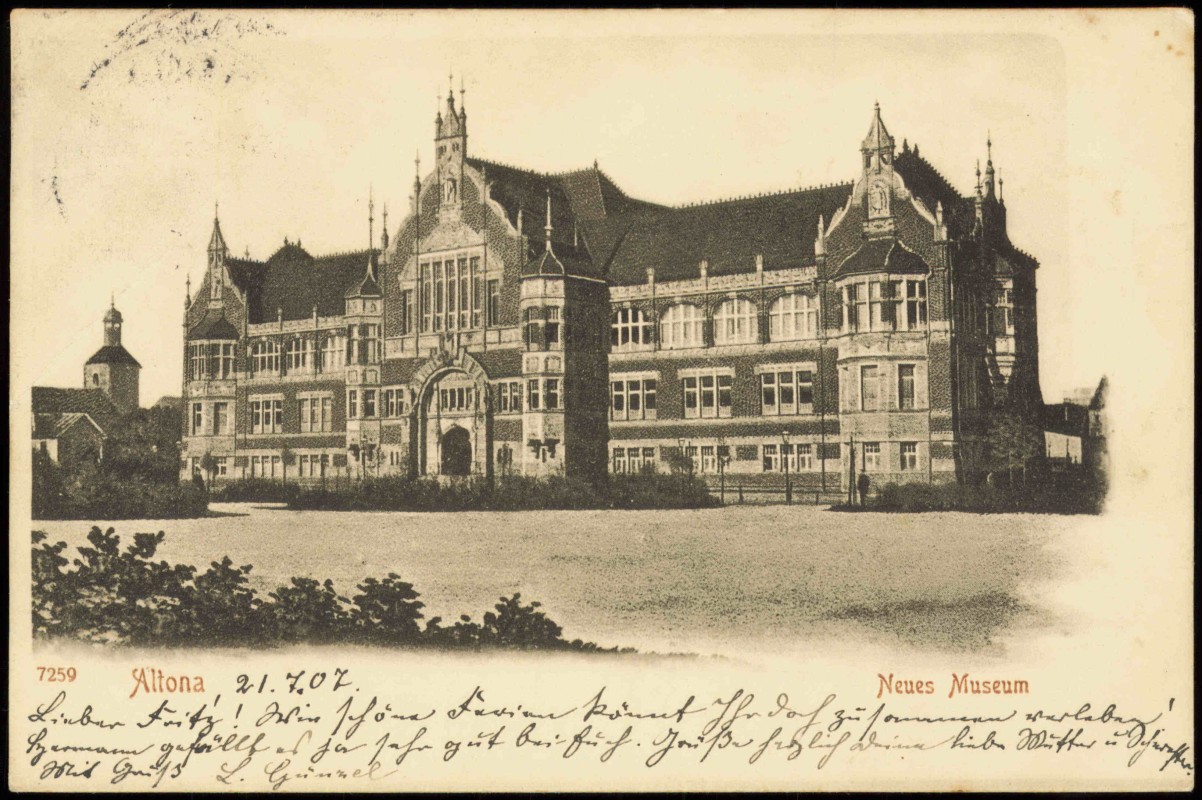 7259 Altona 21.7.07. Neues Museum
Lieber Fritz! Wie schöne Ferien könnt Ihr doch zusammen verleben!
Hermann gefällt es ja sehr gut bei Euch. Grüße herzlich Deine liebe Mutter u Schwester.
Mit Gruß L. Günzel